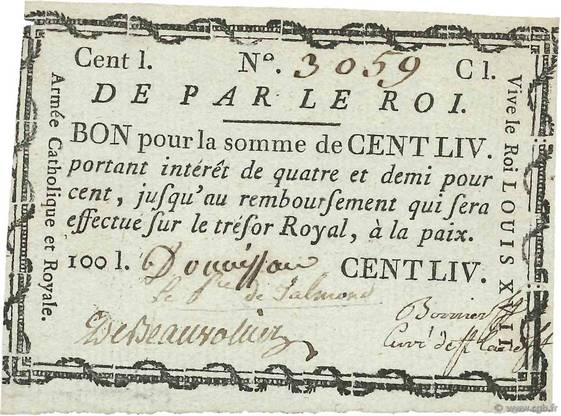 Cent l. N.º 3059 C l.
DE PAR LE ROI.
BON pour la somme de CENT LIV.
portant intérêt de quatre et demi pour
cent, jusqu'au remboursement qui sera
effectue sur le trésor Royal, à la paix.
100 l. Donnissan CENT LIV.
le pce de Talmond
DeBeauvollier
Armée Catholique et Royale.
Vive le Roi LOUIS XVII
© www.cgb.fr